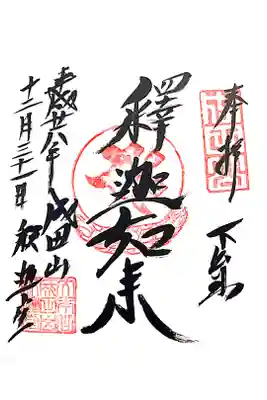 奉拝
下総
釋迦如来
平成廿八年 成田山
十二月三十一日 釈迦堂